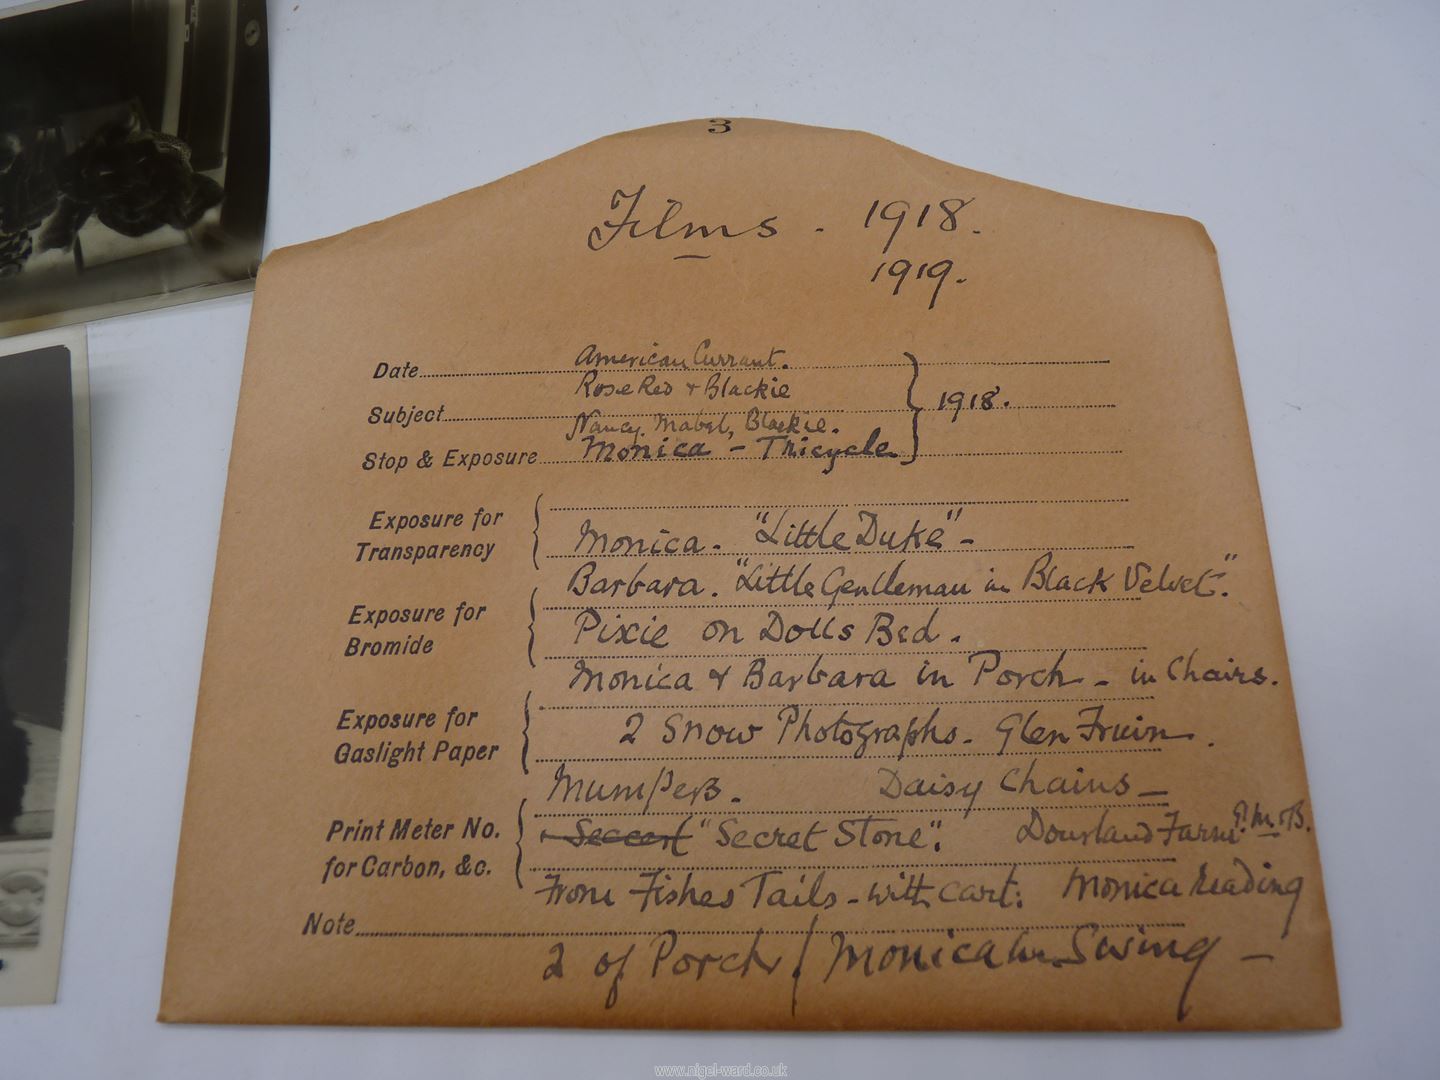 3
Films. 1918.
1919.
Date American Currant.
Rose Red & Blackie
Subject 1918.
Nancy, Mabel, Blackie.
Stop & Exposure Monica - Tricycle
Exposure for
Transparency
Monica. "Little Duke" -
Barbara. "Little Gentleman in Black Velvet".
Exposure for
Bromide
Pixie on Dolls Bed.
Monica & Barbara in Porch - in Chairs.
Exposure for
Gaslight Paper
2 Snow Photographs. Glen Fruin.
Mumpers. Daisy Chains -
Print Meter No.
for Carbon, &c.
Seccert "Secret Stone". Farm
From Fishes Tails - with cart: Monica reading
Note
2 of Porch / Monica in Swing -
www.nigel-ward.co.uk